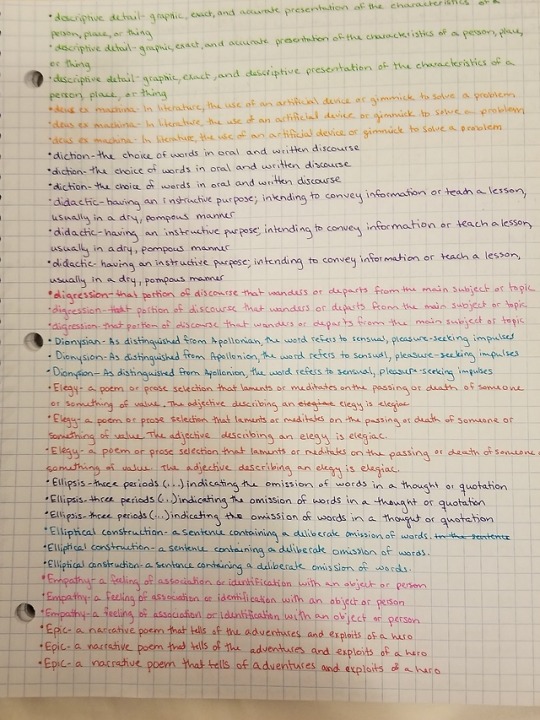 •descriptive detail- graphic, exact, and accurate presentation of the characteristics of a
person, place, or thing
•descriptive detail-graphic, exact, and accurate presentation of the characteristics of a person, place,
or thing
•descriptive detail-graphic, exact, and descriptive presentation of the characteristics of a
person, place, or thing
•deus ex machina- In literature, the use of an artificial device or gimmick to solve a problem
•deus ex machina- In literature, the use of an artificial device or gimmick to solve a problem
•deus ex machina- In literature, the use of an artificial device or gimmick to solve a problem
•diction-the choice of words in oral and written discourse
•diction-the choice of words in oral and written discourse
•diction-the choice of words in oral and written discourse
•didactic-having an instructive purpose; intending to convey information or teach a lesson,
usually in a dry, pompous manner
•didactic-having an instructive purpose; intending to convey information or teach a lesson,
usually in a dry, pompous manner
•didactic-having an instructive purpose; intending to convey information or teach a lesson,
usually in a dry, pompous manner
•digression-that portion of discourse that wanders or departs from the main subject or topic
•digression-that portion of discourse that wanders or departs from the main subject or topic
•digression-that portion of discourse that wanders or departs from the main subject or topic
•Dionysian- As distinguished from Apollonian, the word refers to sensual, pleasure-seeking impulses
•Dionysion-As distinguished from Apollonion, the word refers to sensual, pleasure-seeking impulses
•Dionysion-As distinguished from Apollonion, the word refers to sensual, pleasure-seeking impulses
•Elegy- a poem or prose selection that laments or meditates on the passing or death of someone
or something of value. The adjective describing an elegiac elegy is elegiac
•Elegy- a poem or prose selection that laments or meditates on the passing or death of someone or
something of value. The adjective describing an elegy is elegiac.
•Elegy- a poem or prose selection that laments or meditates on the passing or death of someone or
something of value. The adjective describing an elegy is elegiac.
•Ellipsis-three periods (...) indicating the omission of words in a thought or quotation
•Ellipsis-three periods (...) indicating the omission of words in a thought or quotation
•Ellipsis-three periods (...) indicating the omission of words in a thought or quotation
•Elliptical construction- a sentence containing a deliberate omission of words. in the sentence
•Elliptical construction-a sentence containing a deliberate omission of words.
•Elliptical construction-a sentence containing a deliberate omission of words.
•Empathy-a feeling of association or identification with an object or person
•Empathy-a feeling of association or identification with an object or person
•Empathy-a feeling of association or identification with an object or person
•Epic- a narrative poem that tells of the adventures and exploits of a hero
•Epic- a narrative poem that tells of the adventures and exploits of a hero
•Epic- a narrative poem that tells of adventures and exploits of a hero